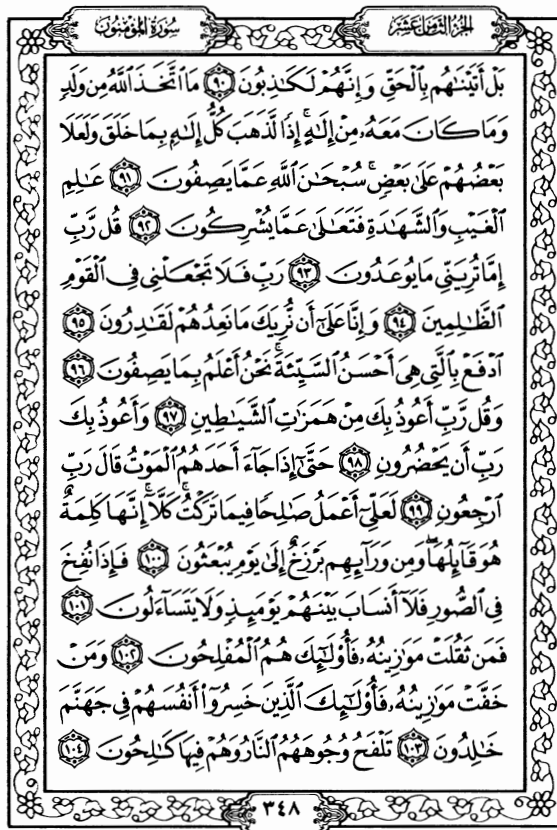 سُورَةُ المُؤْمِنُونَ
الجُزْءُ الثَّامِنَ عَشَرَ
بَلْ أَتَيْنَٰهُم بِالْحَقِّ وَإِنَّهُمْ لَكَٰذِبُونَ ٩٠ مَا اتَّخَذَ اللَّهُ مِن وَلَدٍ
وَمَا كَانَ مَعَهُۥ مِنْ إِلَٰهٍ ۚ إِذًا لَّذَهَبَ كُلُّ إِلَٰهٍ بِمَا خَلَقَ وَلَعَلَا
بَعْضُهُمْ عَلَىٰ بَعْضٍ ۚ سُبْحَٰنَ اللَّهِ عَمَّا يَصِفُونَ ٩١ عَٰلِمِ
الْغَيْبِ وَالشَّهَٰدَةِ فَتَعَٰلَىٰ عَمَّا يُشْرِكُونَ ٩٢ قُل رَّبِّ
إِمَّا تُرِيَنِّي مَا يُوعَدُونَ ٩٣ رَبِّ فَلَا تَجْعَلْنِي فِي الْقَوْمِ
الظَّٰلِمِينَ ٩٤ وَإِنَّا عَلَىٰٓ أَن نُّرِيَكَ مَا نَعِدُهُمْ لَقَٰدِرُونَ ٩٥
ادْفَعْ بِالَّتِي هِيَ أَحْسَنُ السَّيِّئَةَ ۚ نَحْنُ أَعْلَمُ بِمَا يَصِفُونَ ٩٦
وَقُل رَّبِّ أَعُوذُ بِكَ مِنْ هَمَزَٰتِ الشَّيَٰطِينِ ٩٧ وَأَعُوذُ بِكَ
رَبِّ أَن يَحْضُرُونِ ٩٨ حَتَّىٰٓ إِذَا جَآءَ أَحَدَهُمُ الْمَوْتُ قَالَ رَبِّ
ارْجِعُونِ ٩٩ لَعَلِّيٓ أَعْمَلُ صَٰلِحًا فِيمَا تَرَكْتُ ۚ كَلَّآ ۚ إِنَّهَا كَلِمَةٌ
هُوَ قَآئِلُهَا ۖ وَمِن وَرَآئِهِم بَرْزَخٌ إِلَىٰ يَوْمِ يُبْعَثُونَ ١٠٠ فَإِذَا نُفِخَ
فِي الصُّورِ فَلَآ أَنسَابَ بَيْنَهُمْ يَوْمَئِذٍ وَلَا يَتَسَآءَلُونَ ١٠١
فَمَن ثَقُلَتْ مَوَٰزِينُهُۥ فَأُو۟لَٰٓئِكَ هُمُ الْمُفْلِحُونَ ١٠٢ وَمَنْ
خَفَّتْ مَوَٰزِينُهُۥ فَأُو۟لَٰٓئِكَ الَّذِينَ خَسِرُوٓا۟ أَنفُسَهُمْ فِي جَهَنَّمَ
خَٰلِدُونَ ١٠٣ تَلْفَحُ وُجُوهَهُمُ النَّارُ وَهُمْ فِيهَا كَٰلِحُونَ ١٠٤
٣٤٨